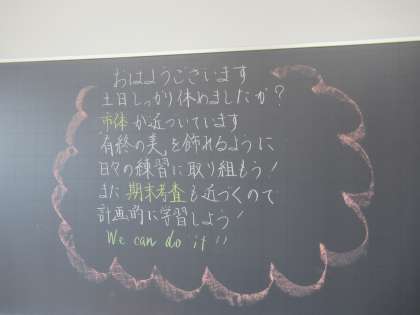 おはようございます
土日しっかり休めましたか？
市体が近づいています
有終の美を飾れるように
日々の練習に取り組もう！
また期末考査も近づくので
計画的に学習しよう！
We can do it !!